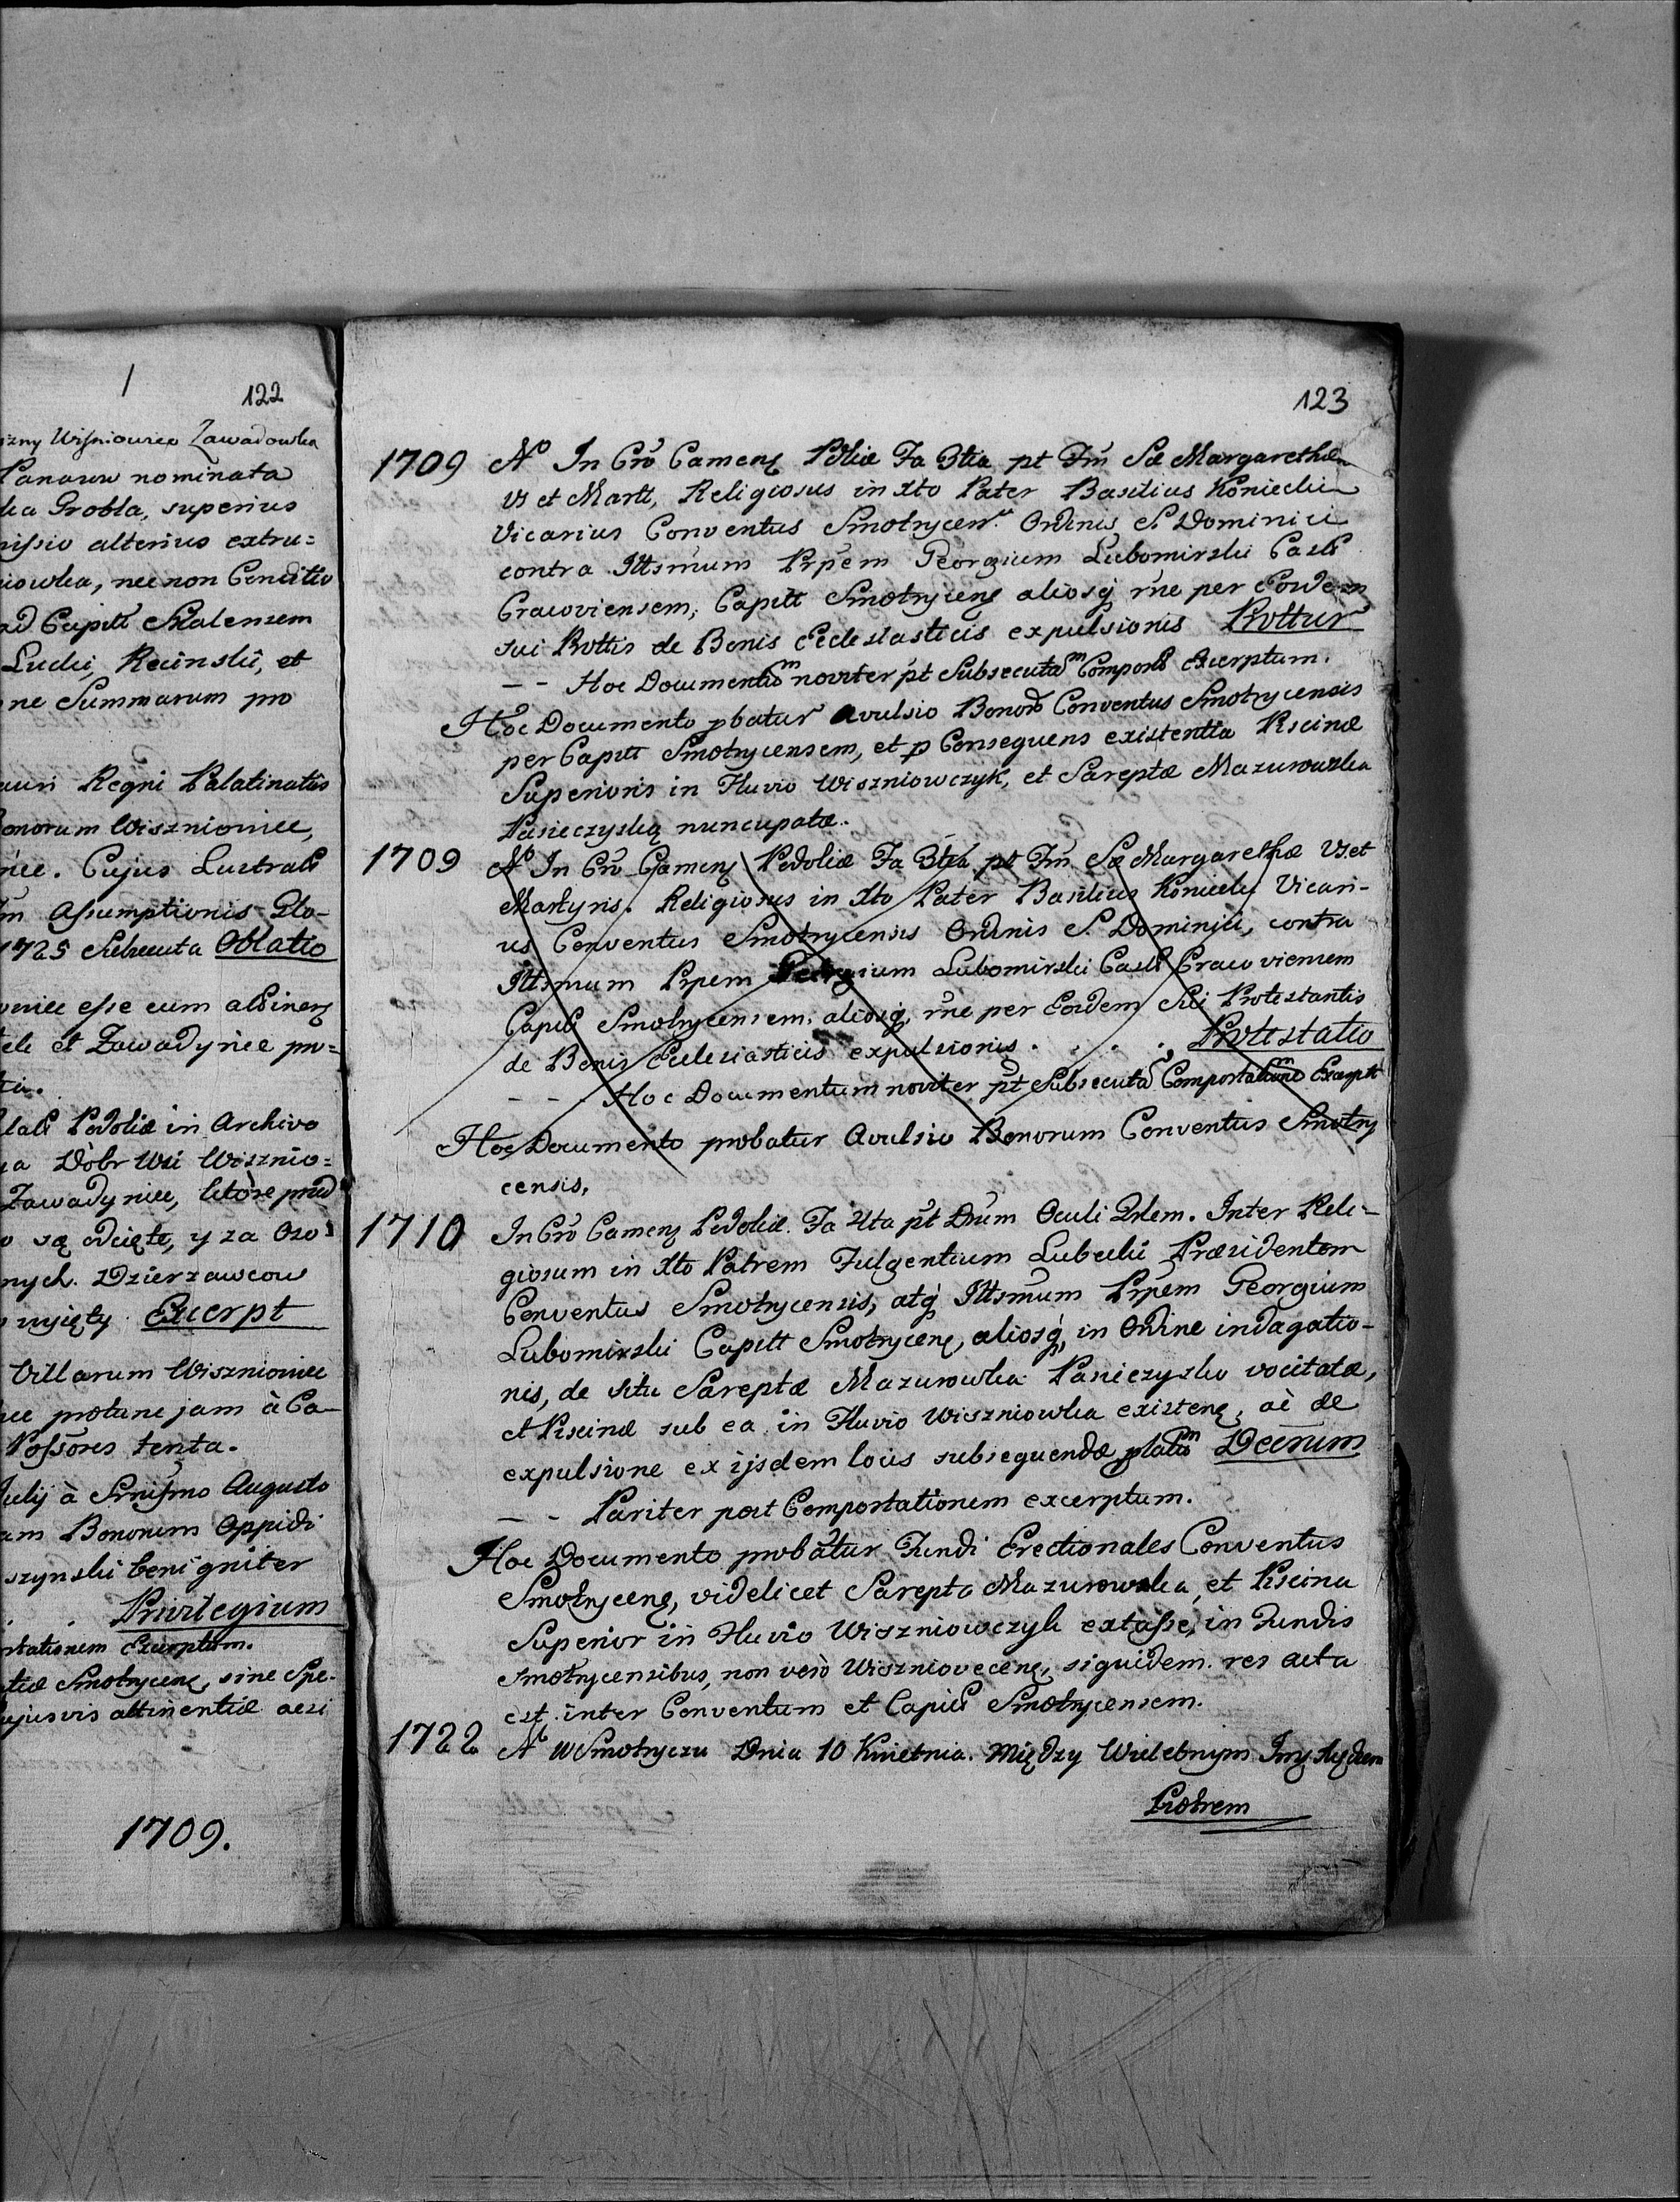 122
Wiszniowiec Zawadowka
Panaruw nominata
Grobla, superius
alterius extru=
nec non Conditio
ad Captt Skalensem
Lucki, Recinski, et
ne Summarum pro
Regni Palatinatus
Wiszniowiec,
Cujus Lustrati
Assumptionis Glo-
1725 Subsecuta Oblatio
esse cum attinen
et Zawadynie pro=
Podoliæ in Archivo
Dobr Wsi Wisznio=
Zawadyniec, które przed
są odcięte, y za Oso
nych Dzierzawcow
wyięty Excerpt
Villarum Wiszniowiec
protunc jam à Ca-
Possores tenta.
July à Srnissmo Augusto
Bonorum Oppidi
benigniter
Privilegium
Excerptum.
Smotrycens, sine Spe-
attinentiæ acsi
1709.
123
1709 No In Cro Camens Pdliæ Fa 3tia pt Fm Sæ Margarethæ
Vs et Martt, Religiosus in Xto Pater Basilius Koniecki
Vicarius Conventus Smotrycen. Ordinis S. Dominici
contra Illsmum Prpem Georgium Lubomirski Castt
Cracoviensem, Captt Smotrycens aliosq rne per Eosdem
sui Prottis de Bonis Ecclesiasticis expulsionis Prottur
-- Hoc Documentum noviter pt Subsecutam Comports Excerptum.
Hoc Documento pbatur Avulsio Bonor Conventus Smotrycensis
per Captt Smotrycensem, et p Consequens existentia Piscinæ
Superioris in Fluvio Wiszniowczyk, et Sareptæ Mazurowska
Pasieczyską nuncupatæ.
1709 No In Cro Camens Podoliæ Fa 3tia pt Fm Sæ Margarethæ Vs et
Martyris. Religiosus in Xto Pater Basilius Koniecki Vicari-
us Conventus Smotrycensis Ordinis S. Dominici, contra
Illsmum Prpem Georgium Lubomirski Castt Cracoviensem
Captt Smotrycensem, aliosq, rne per Eosdem Sui Protestantis
de Bonis Ecclesiasticis expulsionis . . . . , Protestatio
- - - Hoc Documentum noviter pt Subsecutam Comportationem Excerpt
Hoc Documento probatur Avulsio Bonorum Conventus Smotry
censis.
1710 In Cro Camens Podoliæ. Fa 2da pt Dnum Oculi Qdlem. Inter Reli-
giosum in Xto Patrem Fulgentium Lubecki Præsidentem
Conventus Smotrycensis, atq Illsmum Prpem Georgium
Lubomirski Captt Smotrycens, aliosq, in Ordine indagatio-
nis, de situ Sareptæ Mazurowka Pasieczysko vocitatæ,
et Piscinæ sub ea in Fluvio Wiszniowka existens, ac de
expulsione ex ijsdem locis subsequendæ Decrum
-- Pariter post Comportationem excerptum.
Hoc Documento probatur Fundi Erectionales Conventus
Smotrycens, videlicet Sarepta Mazurowska, et Piscina
Superior in Fluvio Wiszniowczyk extasse, in Fundis
Smotrycensibus, non vero Wiszniovecens, siquidem res acta
est inter Conventum et Captt Smotrycensem.
1722 No W Smotryczu Dnia 10 Kwietnia. Między Wielebnym Jmc Xiędzem
Piotrem